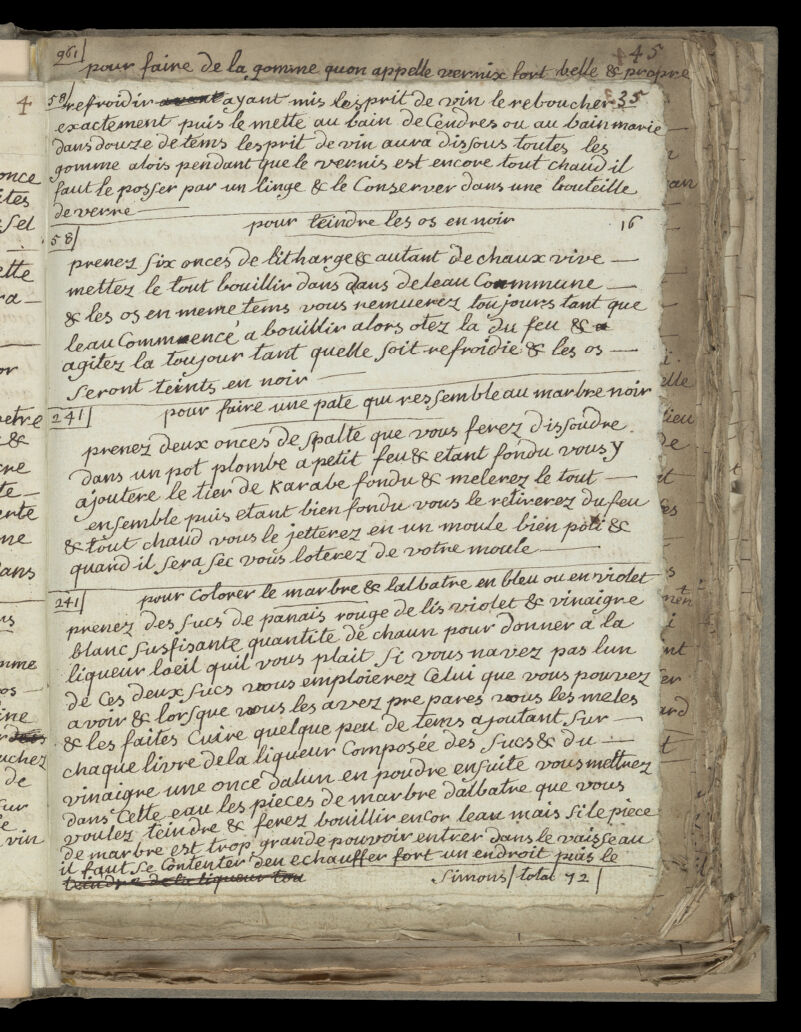 961/
45
pour faire de la gomme quon appelle vernix fort belle & propre
58/ refroidir avant ayant mis lesprit de vin le reboucher 35
exactement puis le mette au bain de Cendres ou au bain marie
dans douze de tems lesprit de vin aura dissous toutes les
gomme alois pendant que le vernis est encore tout chaud il
faut le posser par un linge & le Conserver dans une bouteille
de verre
pour teindre les os en noir 16
58/
prenez six onces de litharge & autant de chaux vive
mettez le tout bouillir dans dans de leau Commmune
& les os en meme tems vous remuerez toujours tant que
leau Commencé a bouillir alors otez la du feu &
agitez la toujour tant quelle soit refroidie & les os
seront teints en noir
241/ pour faire une pate qui ressemble au marbre noir
prenez deux onces de spalte que vous ferez dissoudre
dans un pot plombe a petit feu & etant fondu vous y
ajoutere le tier de Karabe fondu & melerez le tout
ensemble puis etant bien fondu vous le retirerez du feu
& tout chaud vous le jetterez en un moule bien poli &
quand il sera sec vous loterez de votre moule
241/ pour Colorer le marbre & lalbatre en bleu ou en violet
prenez des sucs de panais rouge de lis violet & vinaigre
blanc susfisante quantite de chaun pour donner a la
liqueur laeil quil vous plait si vous navez pas lun
de Ces deux sucs vous emploierez Celui que vous pouvez
avoir & lorsque vous les avez prepares vous les meles
& les faites Cuire quelque peu de tems ajoutant sur
chaque livre dela liqueur Composée des sucs & du
vinaigre une once dalun en poudre ensuite vous mettrez
dans Cette eau les pieces de marbre dalbatre que vous
voulez teindre & ferez bouillir encor leau mais si le piece
de marbre est trop grande pouvoir entrer dans le vaisseau
il faut se Contenter den echauffer fort un endroit puis le
teindre de la liqueur tou
simons/ total 72/